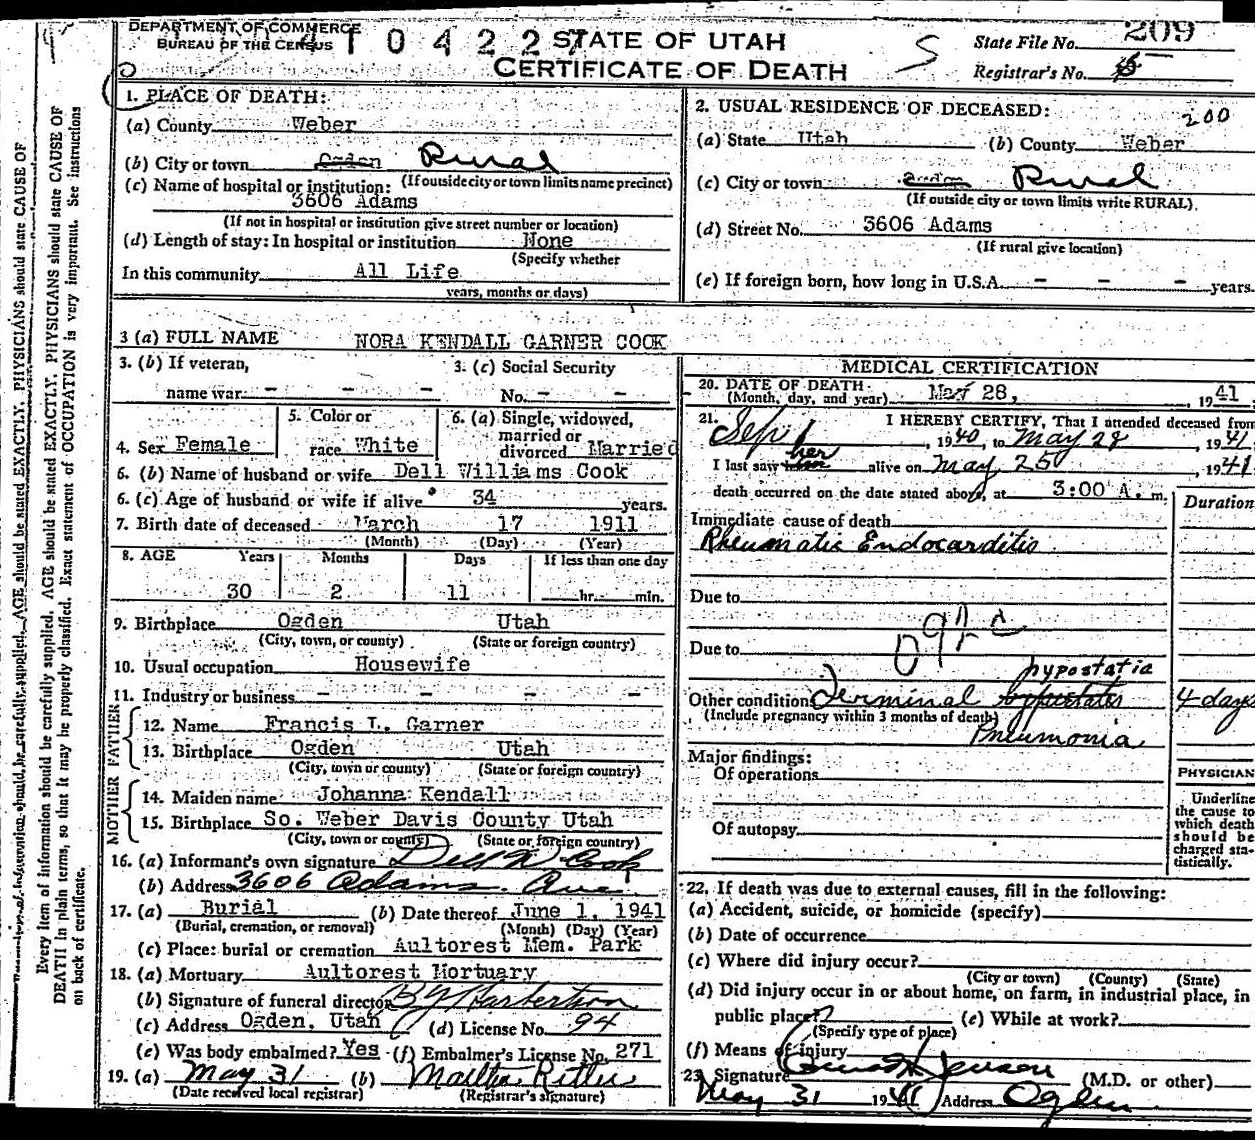 DEPARTMENT OF COMMERCE
BUREAU OF THE CENSUS
4 1 0 4 2 2 7
STATE OF UTAH
CERTIFICATE OF DEATH
State File No. 209
Registrar's No.
1. PLACE OF DEATH:
(a) County Weber
(b) City or town Ogden Rural
(If outside city or town limits name precinct)
(c) Name of hospital or institution:
3606 Adams
(If not in hospital or institution give street number or location)
(d) Length of stay: In hospital or institution None
(Specify whether
In this community All Life
years, months or days)
2. USUAL RESIDENCE OF DECEASED:
200
(a) State Utah (b) County Weber
(c) City or town Rural
(If outside city or town limits write RURAL)
(d) Street No. 3606 Adams
(If rural give location)
(e) If foreign born, how long in U.S.A. - - - years.
3 (a) FULL NAME NORA KENDALL GARNER COOK
3. (b) If veteran,
name war. - - -
3. (c) Social Security
No. - -
4. Sex Female
5. Color or
race White
6. (a) Single, widowed,
married or
divorced Married
6. (b) Name of husband or wife Dell Williams Cook
6. (c) Age of husband or wife if alive 34 years.
7. Birth date of deceased March 17 1911
(Month) (Day) (Year)
8. AGE Years Months Days If less than one day
30 2 11 hr. min.
9. Birthplace Ogden Utah
(City, town, or county) (State or foreign country)
10. Usual occupation Housewife
11. Industry or business - - - - -
FATHER
12. Name Francis L. Garner
13. Birthplace Ogden Utah
(City, town or county) (State or foreign country)
MOTHER
14. Maiden name Johanna Kendall
15. Birthplace So. Weber Davis County Utah
(City, town or county) (State or foreign country)
16. (a) Informant's own signature Dell W Cook
(b) Address 3606 Adams Ave
17. (a) Burial (b) Date thereof June 1, 1941
(Burial, cremation, or removal) (Month) (Day) (Year)
(c) Place: burial or cremation Aultorest Mem. Park
18. (a) Mortuary Aultorest Mortuary
(b) Signature of funeral director
(c) Address Ogden, Utah (d) License No. 94
(e) Was body embalmed? Yes (f) Embalmer's License No. 271
19. (a) May 31 (b)
(Date received local registrar) (Registrar's signature)
MEDICAL CERTIFICATION
20. DATE OF DEATH
(Month, day, and year) May 28, 1941
21. I HEREBY CERTIFY, That I attended deceased from
Sep 1, 1940, to May 28 1941
I last saw him her alive on May 25 1941
death occurred on the date stated above, at 3:00 A. m.
Duration
Immediate cause of death
Rheumatic Endocarditis
Due to
Due to
hypostatia
Other conditions Terminal 4 days
(Include pregnancy within 3 months of death)
Pneumonia
Major findings:
Of operations
Of autopsy
PHYSICIAN
Underline
the cause to
which death
should be
charged sta-
tistically.
22. If death was due to external causes, fill in the following:
(a) Accident, suicide, or homicide (specify)
(b) Date of occurrence
(c) Where did injury occur?
(City or town) (County) (State)
(d) Did injury occur in or about home, on farm, in industrial place, in
public place? (e) While at work?
(Specify type of place)
(f) Means of injury
23. Signature Jenson (M.D. or other)
May 31 1941 Address Ogden
Every item of information should be carefully supplied. AGE should be stated EXACTLY. PHYSICIANS should state CAUSE OF
DEATH in plain terms, so that it may be properly classified. Exact statement of OCCUPATION is very important. See instructions
on back of certificate.